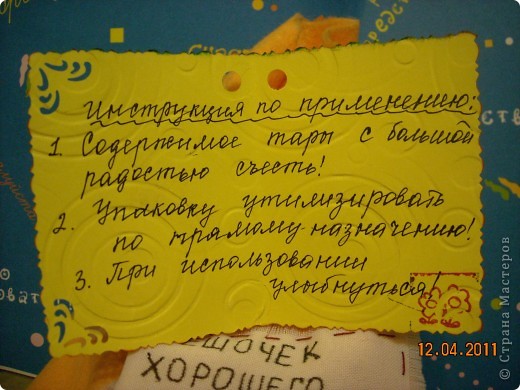 Инструкция по применению:
1. Содержимое тары с большой
радостью съесть!
2. Упаковку утилизировать
по прямому назначению!
3. При использовании
улыбнуться!
ШОЧЕК
ХОРОШЕГО
12.04.2011
© Страна Мастеров